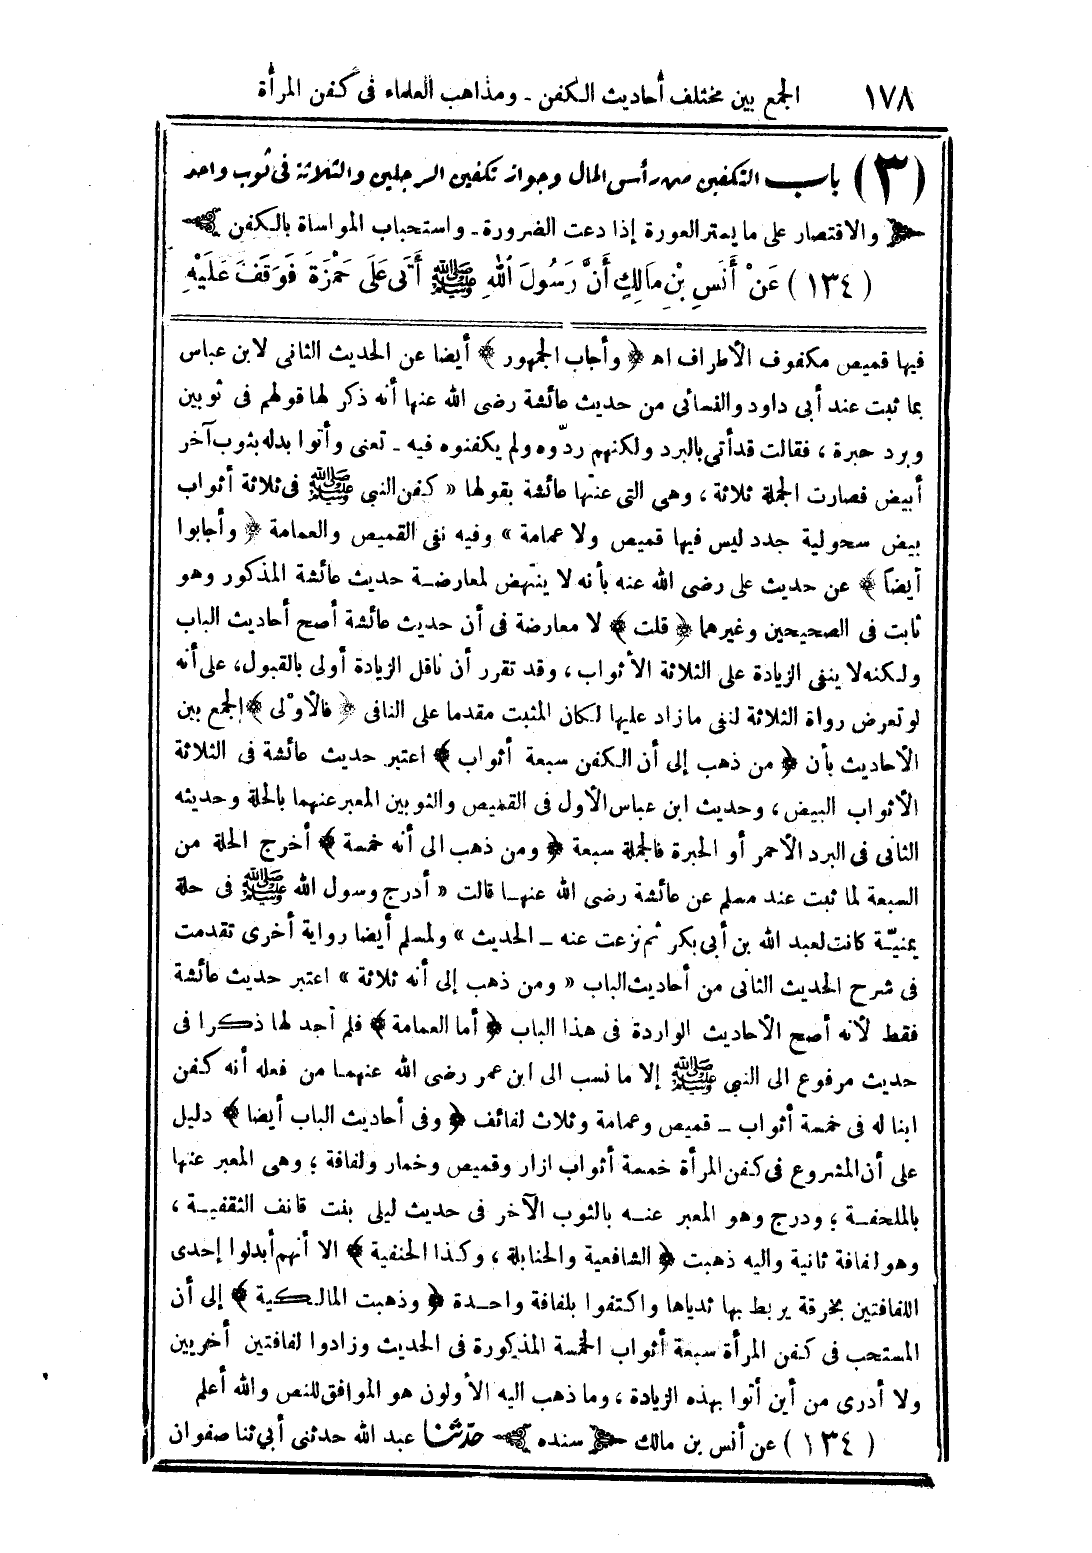 ١٧٨ الجمع بين مختلف أحاديث الكفن ـ ومذاهب العلماء فى كفن المرأة
(٣) باب التكفين من رأس المال وجواز تكفين الرجلين والثلاثة فى ثوب واحد
والاقتصار على ما يستر العورة إذا دعت الضرورة ـ واستحباب المواساة بالكفن
(١٣٤) عَنْ أَنَسِ بْنِ مَالِكٍ أَنَّ رَسُولَ اللهِ ﷺ أَتَى عَلَى حَمْزَةَ فَوَقَفَ عَلَيْهِ
فيها قميص مكفوف الأطراف اه ﴿ وأجاب الجمهور ﴾ أيضا عن الحديث الثانى لابن عباس
بما ثبت عند أبى داود والنسائى من حديث عائشة رضى الله عنها أنه ذكر لها قولهم فى ثوبين
وبرد حبرة ، فقالت قد أتى بالبرد ولكنهم ردّوه ولم يكفنوه فيه ـ تعنى وأتوا بدله بثوب آخر
أبيض فصارت الجملة ثلاثة ، وهى التى عنتها عائشة بقولها « كفن النبى ﷺ فى ثلاثة أثواب
بيض سحولية جدد ليس فيها قميص ولا عمامة » وفيه نفى القميص والعمامة ﴿ وأجابوا
أيضاً ﴾ عن حديث على رضى الله عنه بأنه لا ينتهض لمعارضة حديث عائشة المذكور وهو
ثابت فى الصحيحين وغيرهما ﴿ قلت ﴾ لا معارضة فى أن حديث عائشة أصح أحاديث الباب
ولكنه لا ينفى الزيادة على الثلاثة الأثواب ، وقد تقرر أن ناقل الزيادة أولى بالقبول، على أنه
لو تعرض رواة الثلاثة لنفى ما زاد عليها لكان المثبت مقدما على النافى ﴿ فالأوْلى ﴾ الجمع بين
الأحاديث بأن ﴿ من ذهب إلى أن الكفن سبعة أثواب ﴾ اعتبر حديث عائشة فى الثلاثة
الأثواب البيض ، وحديث ابن عباس الأول فى القميص والثوبين المعبر عنهما بالحلة وحديثه
الثانى فى البرد الأحمر أو الحبرة فالجملة سبعة ﴿ ومن ذهب الى أنه خمسة ﴾ أخرج الحلة من
السبعة لما ثبت عند مسلم عن عائشة رضى الله عنها قالت « أدرج رسول الله ﷺ فى حلة
يمنيّة كانت لعبد الله بن أبى بكر ثم نزعت عنه ـ الحديث » ولمسلم أيضا رواية أخرى تقدمت
فى شرح الحديث الثانى من أحاديث الباب « ومن ذهب إلى أنه ثلاثة » اعتبر حديث عائشة
فقط لأنه أصح الأحاديث الواردة فى هذا الباب ﴿ أما العمامة ﴾ فلم أجد لها ذكرا فى
حديث مرفوع الى النبى ﷺ إلا ما نسب الى ابن عمر رضى الله عنهما من فعله أنه كفن
ابنا له فى خمسة أثواب ـ قميص وعمامة وثلاث لفائف ﴿ وفى أحاديث الباب أيضا ﴾ دليل
على أن المشروع فى كفن المرأة خمسة أثواب ازار وقميص وخمار ولفافة ؛ وهى المعبر عنها
بالملحفة ؛ ودرج وهو المعبر عنه بالثوب الآخر فى حديث ليلى بنت قانف الثقفية ،
وهو لفافة ثانية واليه ذهبت ﴿ الشافعية والحنابلة ، وكذا الحنفية ﴾ الا أنهم أبدلوا إحدى
اللفافتين بخرقة يربط بها ثدياها واكتفوا بلفافة واحدة ﴿ وذهبت المالكية ﴾ إلى أن
المستحب فى كفن المرأة سبعة أثواب الخمسة المذكورة فى الحديث وزادوا لفافتين أخريين
ولا أدرى من أين أتوا بهذه الزيادة ، وما ذهب اليه الأولون هو الموافق للنص والله أعلم
(١٣٤) عن أنس بن مالك سنده حدّثنا عبد الله حدثنى أبى ثنا صفوان